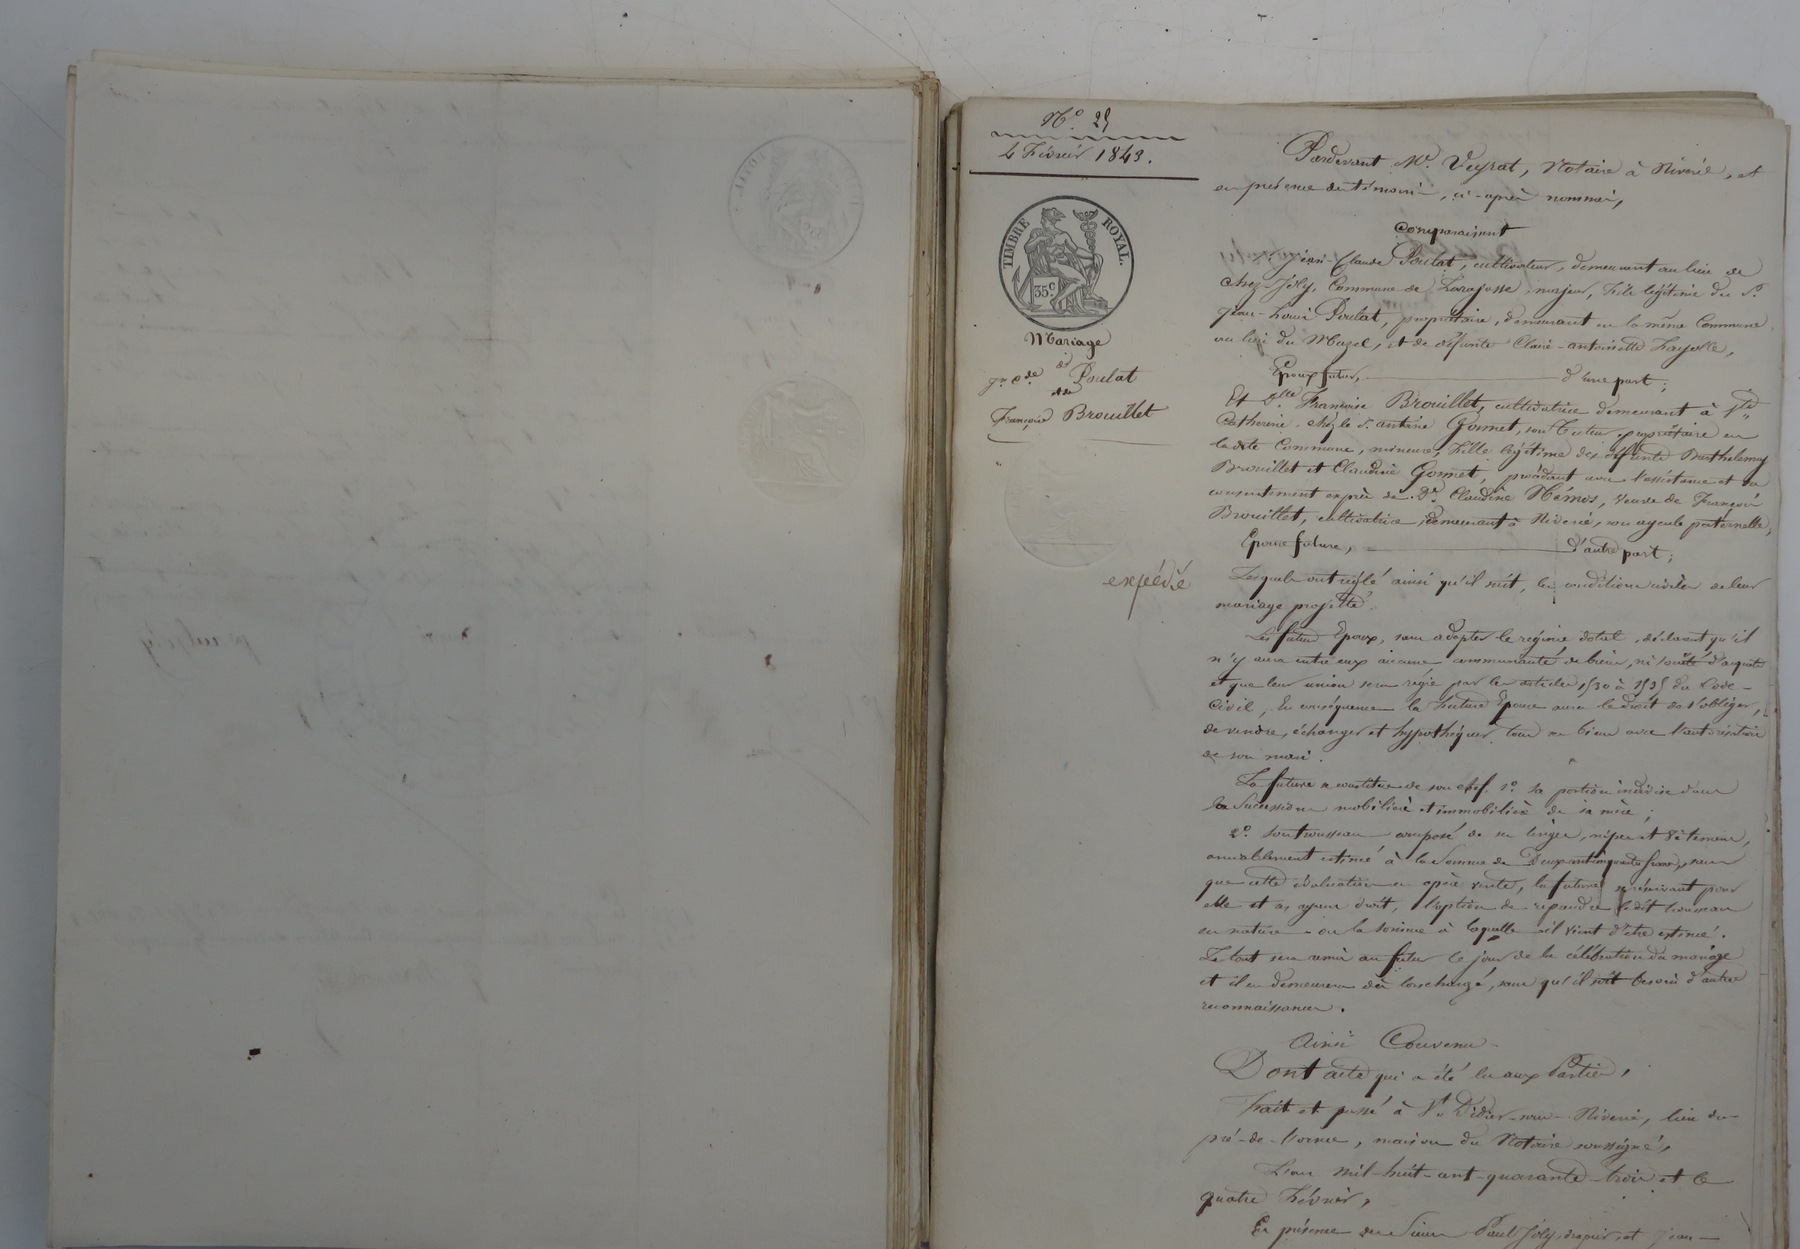 N.° 25
4 Février 1843.
TIMBRE ROYAL.
35.c
Mariage
de
Jn. Cde. Poulat
et de
Françoise Brouillet
expédié
Pardevant M.e Veyrat, Notaire à Riverie, et
en présence des témoins, ci-après nommés,
Comparaissent
Jean-Claude Poulat, cultivateur, demeurant au lieu de
chez-Joly, Commune de Larajasse, majeur, fils légitime du S.r
Jean-Louis Poulat, propriétaire, demeurant en la même Commune
au lieu du Mazel, et de défunte Claire-antoinette Fayolle,
Epoux futur, d'une part;
Et D.lle Françoise Brouillet, cultivatrice demeurant à Ste
Catherine, chez le S. antoine Gonnet, son tuteur, propriétaire en
la dite Commune, mineure, fille légitime des défunts Barthelemy
Brouillet et Claudine Gonnet, procédant avec l'assistance et le
consentement exprès de D.e Claudine Némos, veuve de François
Brouillet, cultivatrice, demeurant à Riverie, son ayeule paternelle,
Epouse future, d'autre part;
Lesquels ont réglé ainsi qu'il suit, les conditions civiles de leur
mariage projetté.
Les futurs Epoux, sans adopter le régime dotal, déclarent qu'il
n'y aura entre eux aucune communauté de biens, ni société d'acquets
et que leur union sera régie par les articles 1530 à 1535 du Code-
Civil, En conséquence la future Epouse aura le droit de s'obliger,
de vendre, échanger et hypothéquer tous ses biens avec l'autorisation
de son mari.
La future se constitue de son chef, 1.° sa portion indivise dans
la Succession mobilière et immobilière de sa mère;
2.° son trousseau composé de ses linges, nipes et vêtemens,
amiablement estimé à la Somme de Deux cent cinquante francs, sans
que cette évaluation en opère vente, la future se réservant pour
elle et ses ayans droit, l'option de reprendre le dit trousseau
en nature ou la somme à laquelle il vient d'être estimé.
Le tout sera remis au futur le jour de la célébration du mariage
et il en demeurera dès lors chargé, sans qu'il soit besoin d'autre
reconnaissance.
Ainsi Convenu
Dont acte qui a été lu aux Parties,
Fait et passé à St. Didier-sous-Riverie, lieu du
pré-de-l'orme, maison du Notaire soussigné,
L'an mil-huit-cent-quarante-trois et le
quatre Février,
En présence des Sieurs Paul Joly, drapier, et Jean-